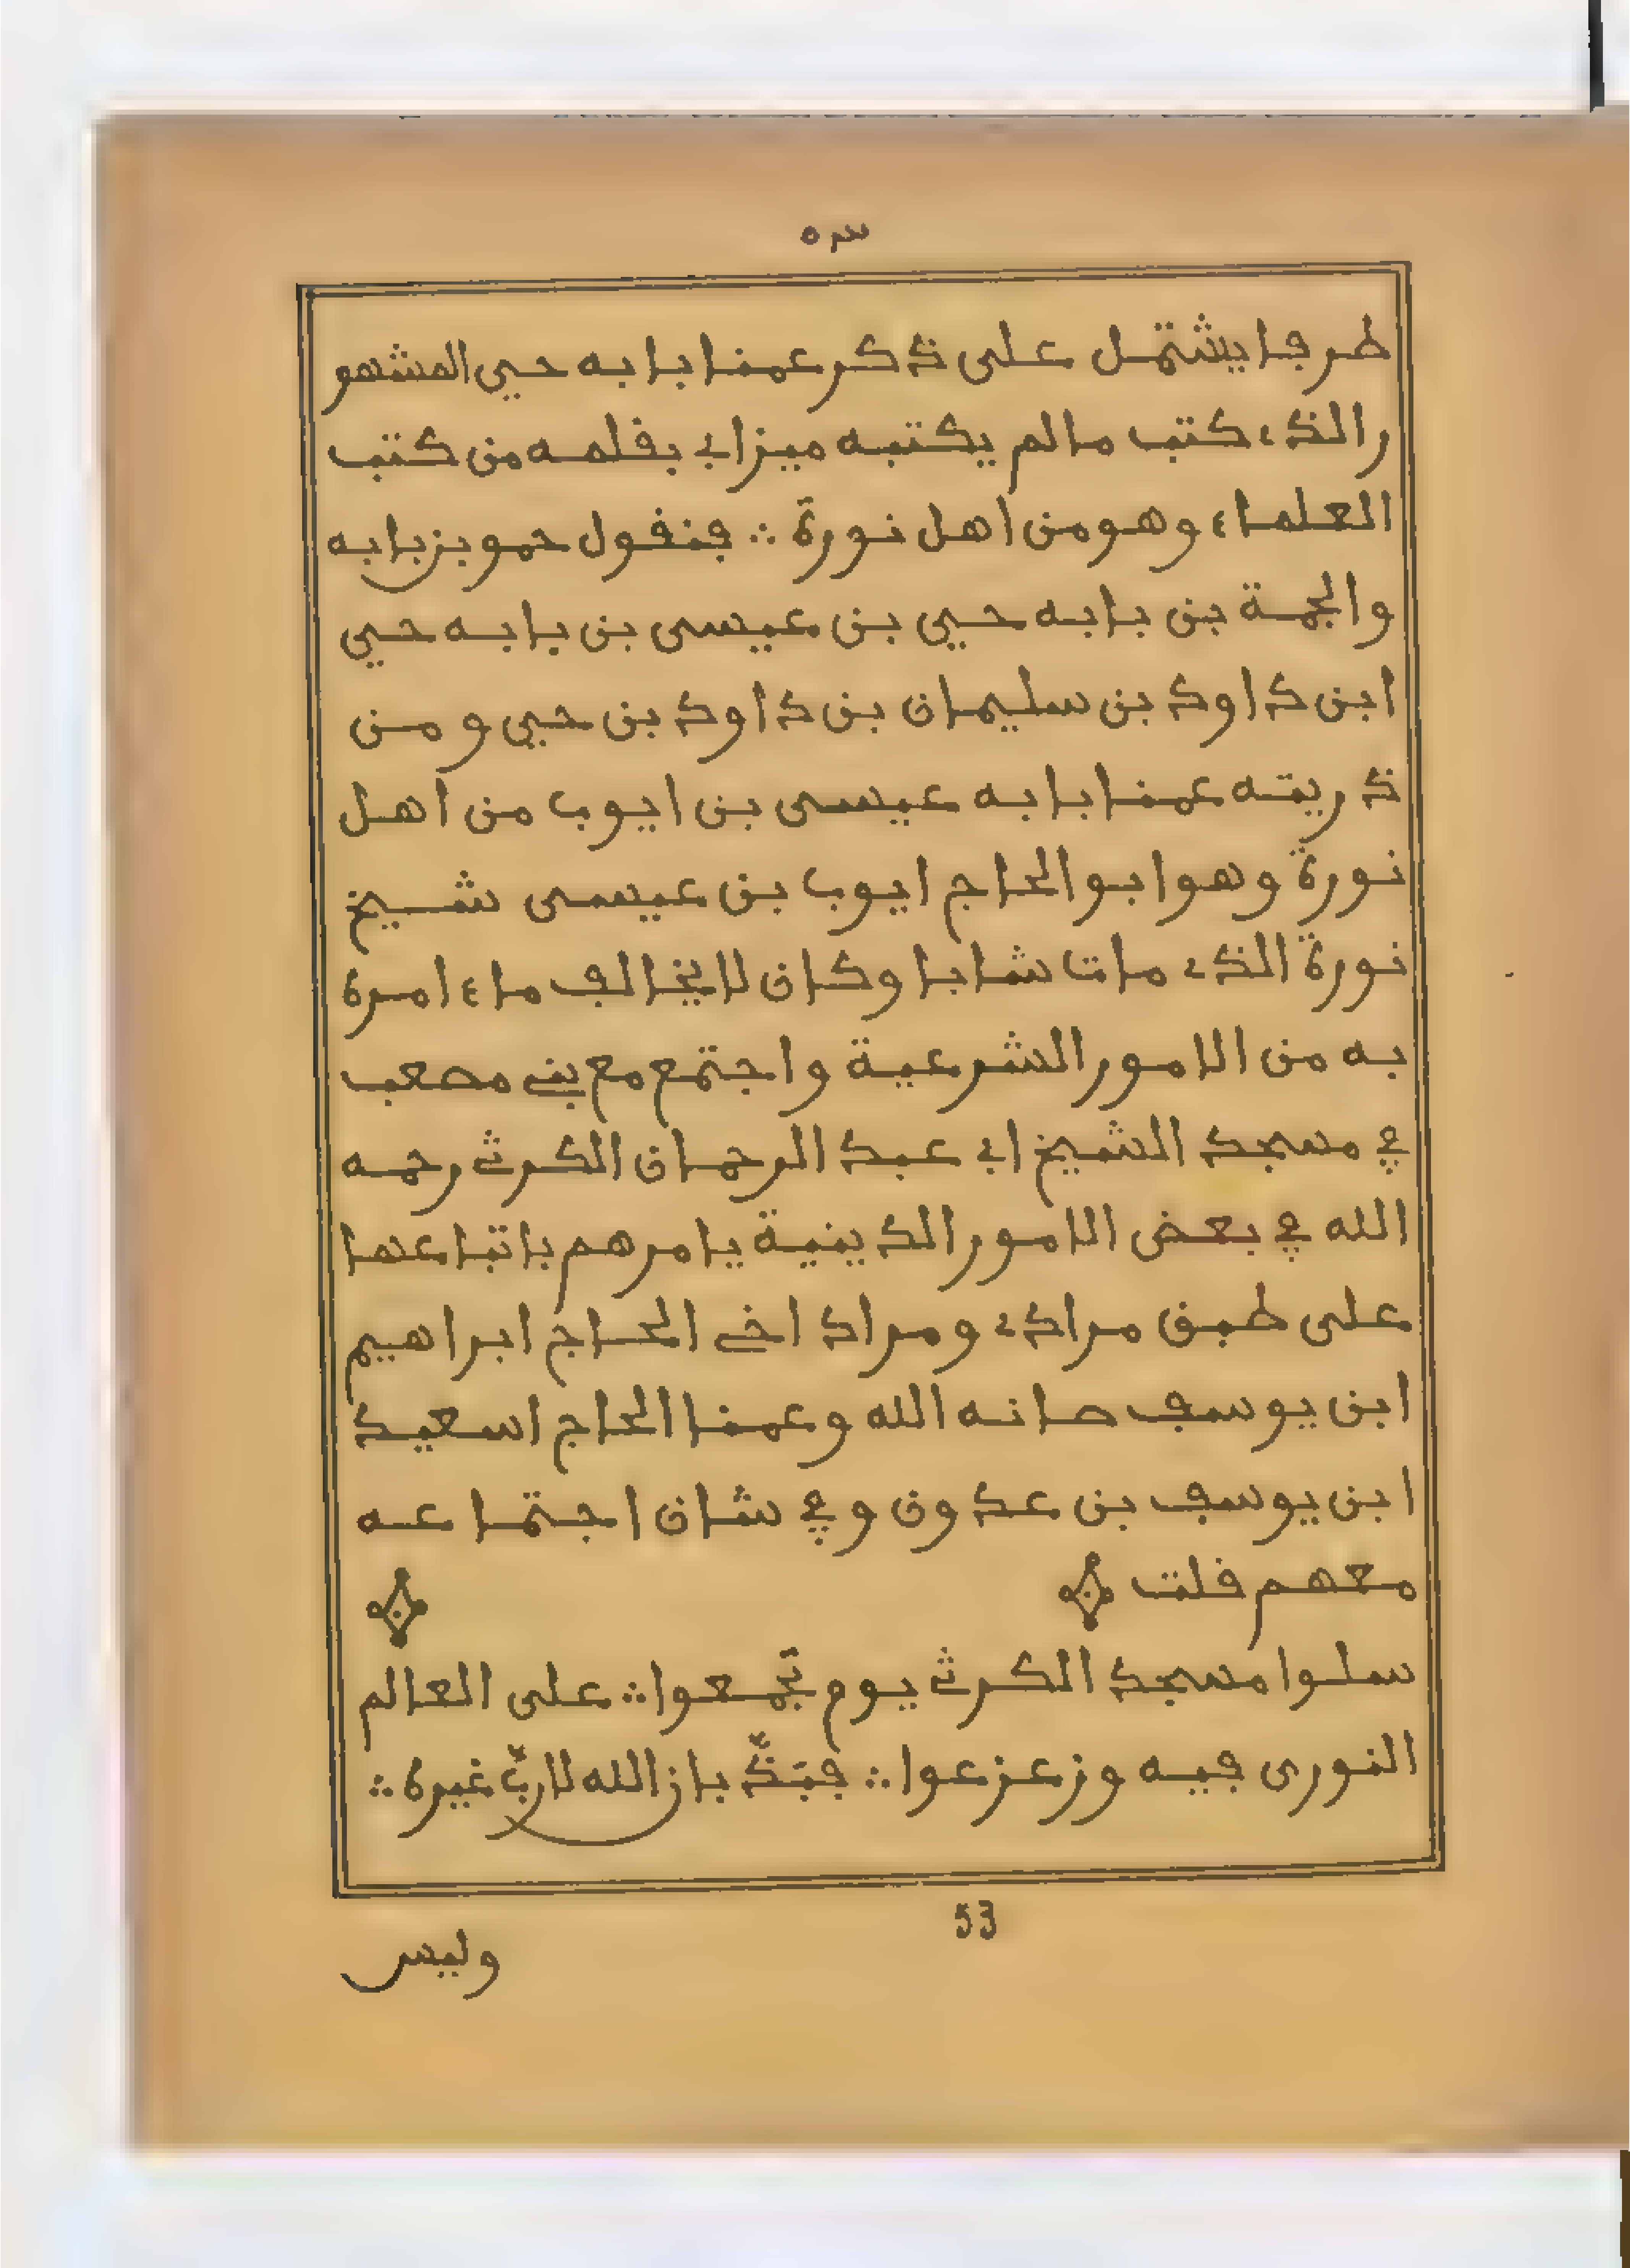 ٥٣
طرفا يشتمل على ذكر عمنا بابه حيي المشهو
ر الذي كتب مالم يكتبه ميزابي بقلمه من كتب
العلماء وهو من اهل نورة ∴ فنقول حمو بن بابه
والجمة بن بابه حيي بن عيسى بن بابه حيي
ابن داود بن سليمان بن داود بن حيي ومن
ذريته عمنا بابه عيسى بن ايوب من اهل
نورة وهو ابو الحاج ايوب بن عيسى شيخ
نورة الذي مات شابا وكان لا يخالف ماء امره
به من الامور الشرعية واجتمع مع بني مصعب
في مسجد الشيخ ابي عبد الرحمان الكرثي رحمه
الله في بعض الامور الدينية يامرهم باتباعها
على طبق مرادي ومراد اخي الحاج ابراهيم
ابن يوسف صانه الله وعمنا الحاج اسعيد
ابن يوسف بن عدون وفي شان اجتماعه
معهم قلت
سلوا مسجد الكرثي يوم تجمعوا ∴ على العالم
النورى فيه وزعزعوا ∴ فبَذّ باذن الله لا ربّ غيره ∴
53
وليس